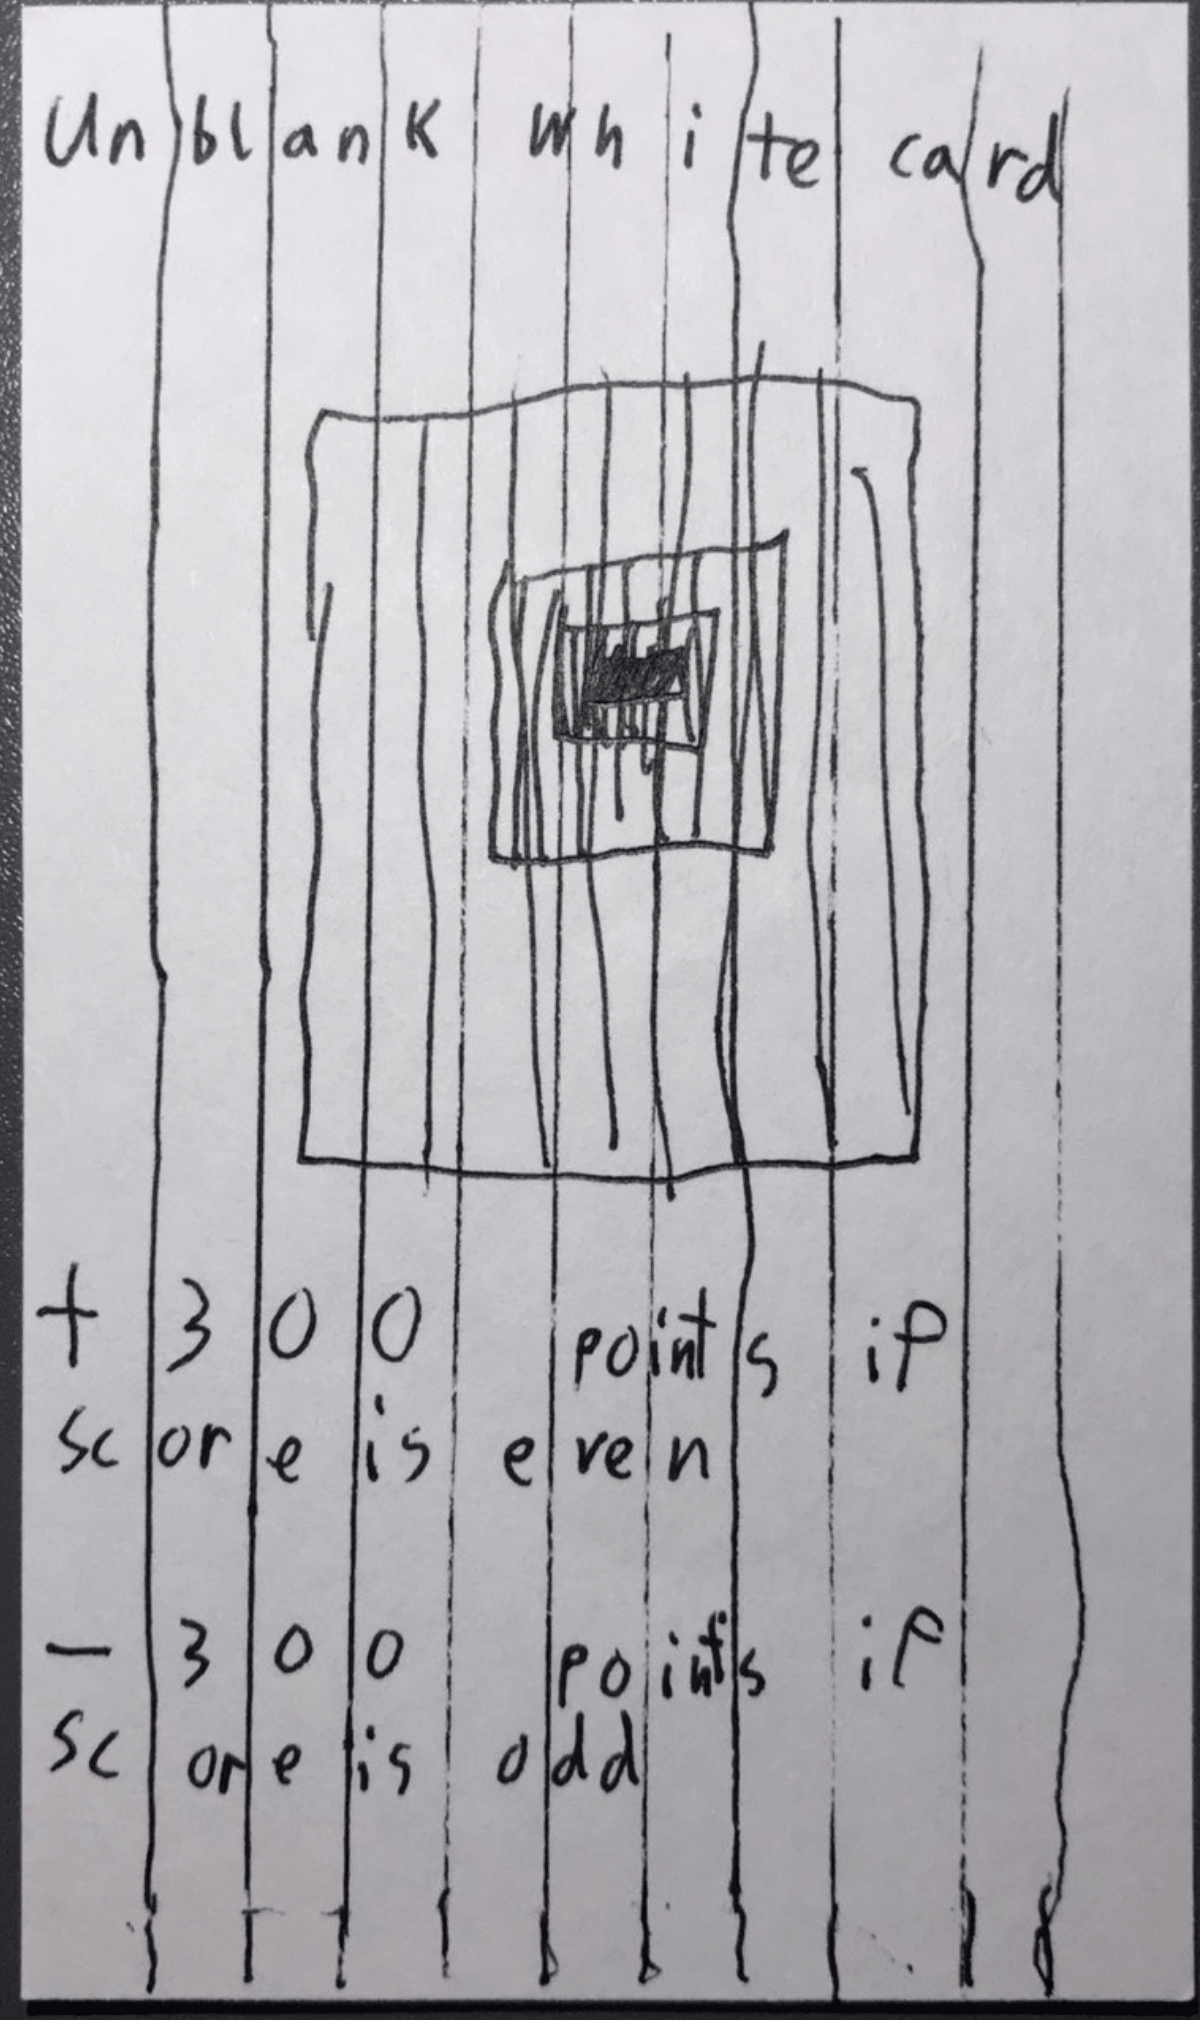 Unblank white card
+300 points if
score is even
-300 points if
score is odd